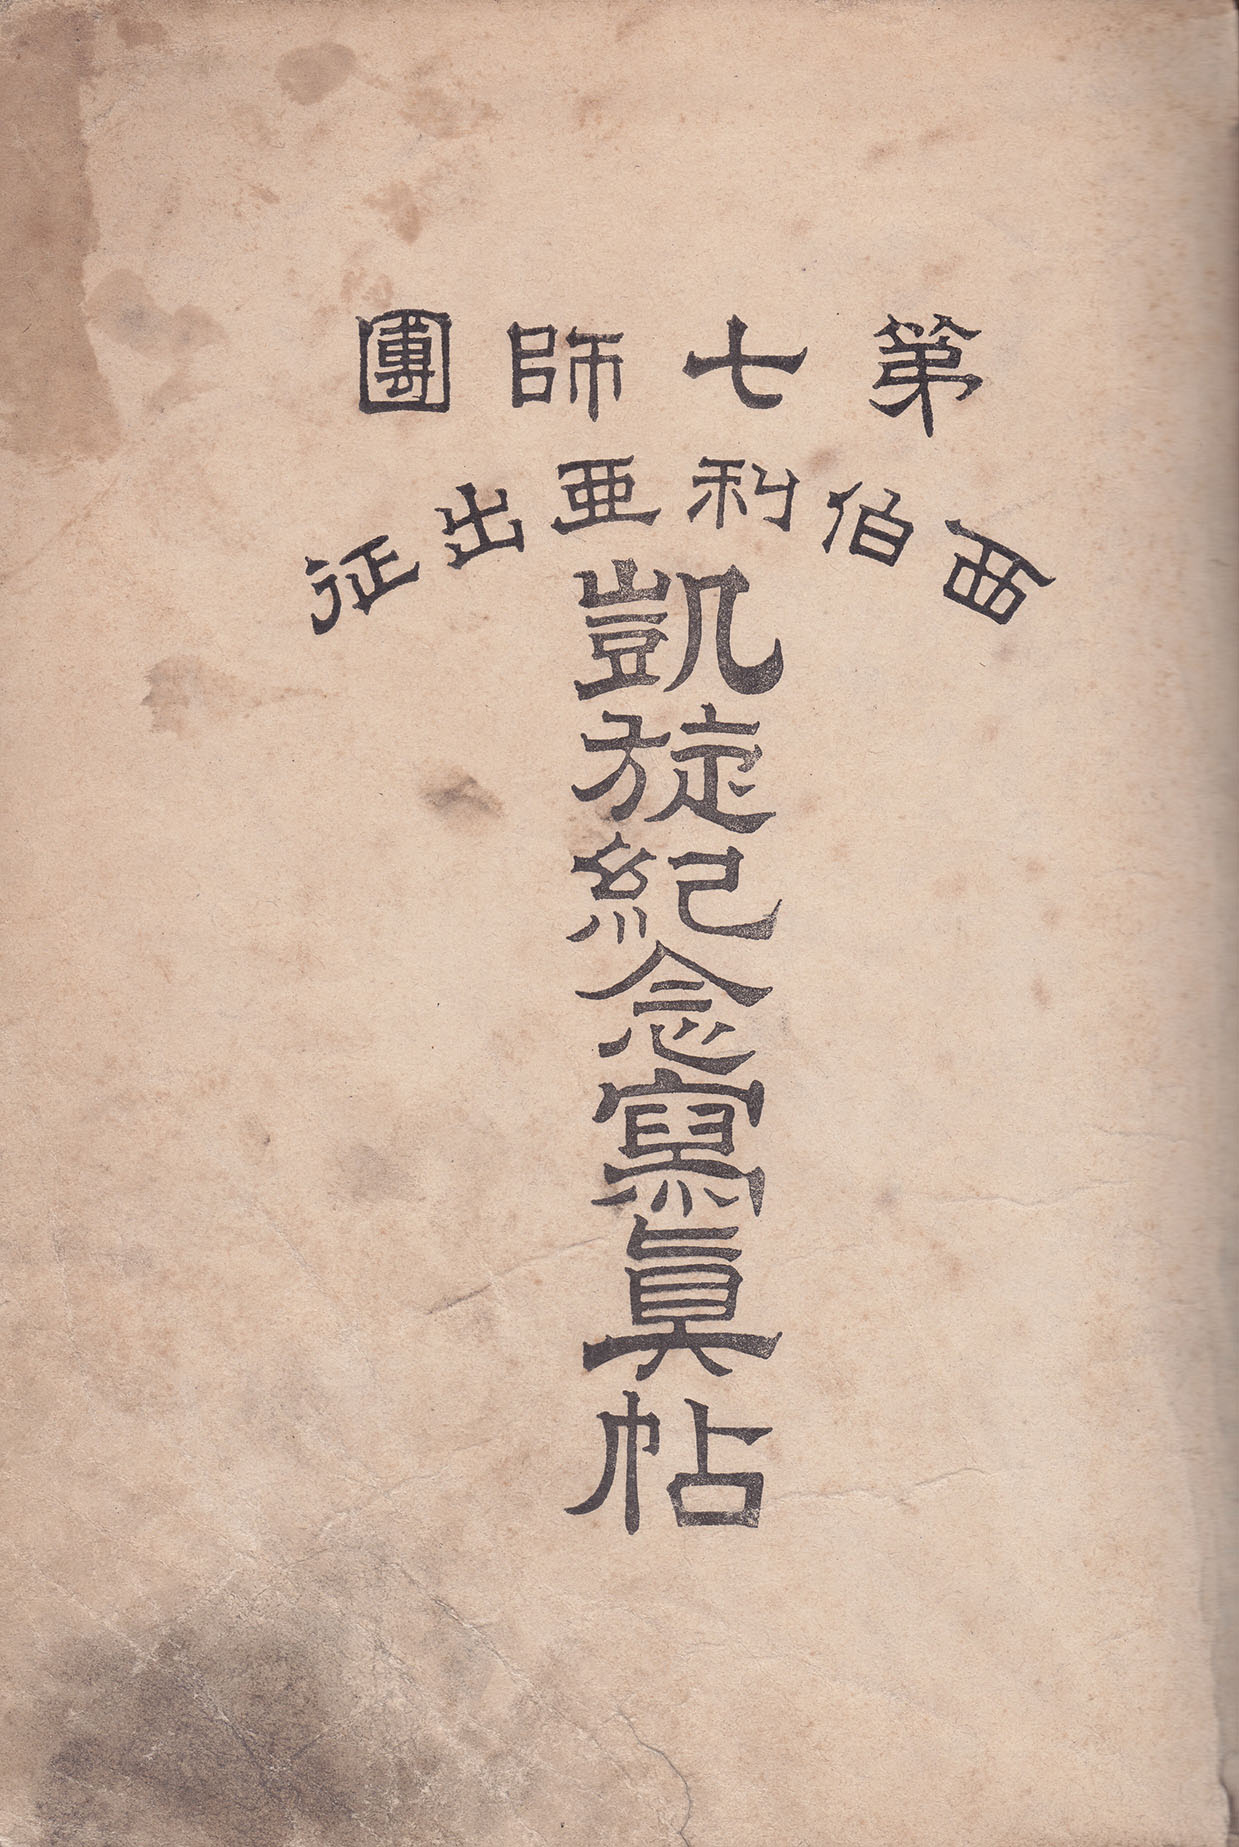 第七師團
西伯利亜出征
凱旋紀念寫眞帖